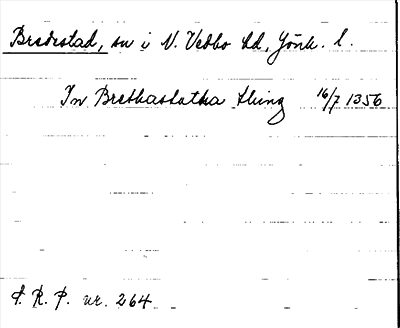 Bredestad, sn i N. Vedbo hd, Jönk. l.
In Brethastatha thing 16/7 1356
S. R. P. nr. 264